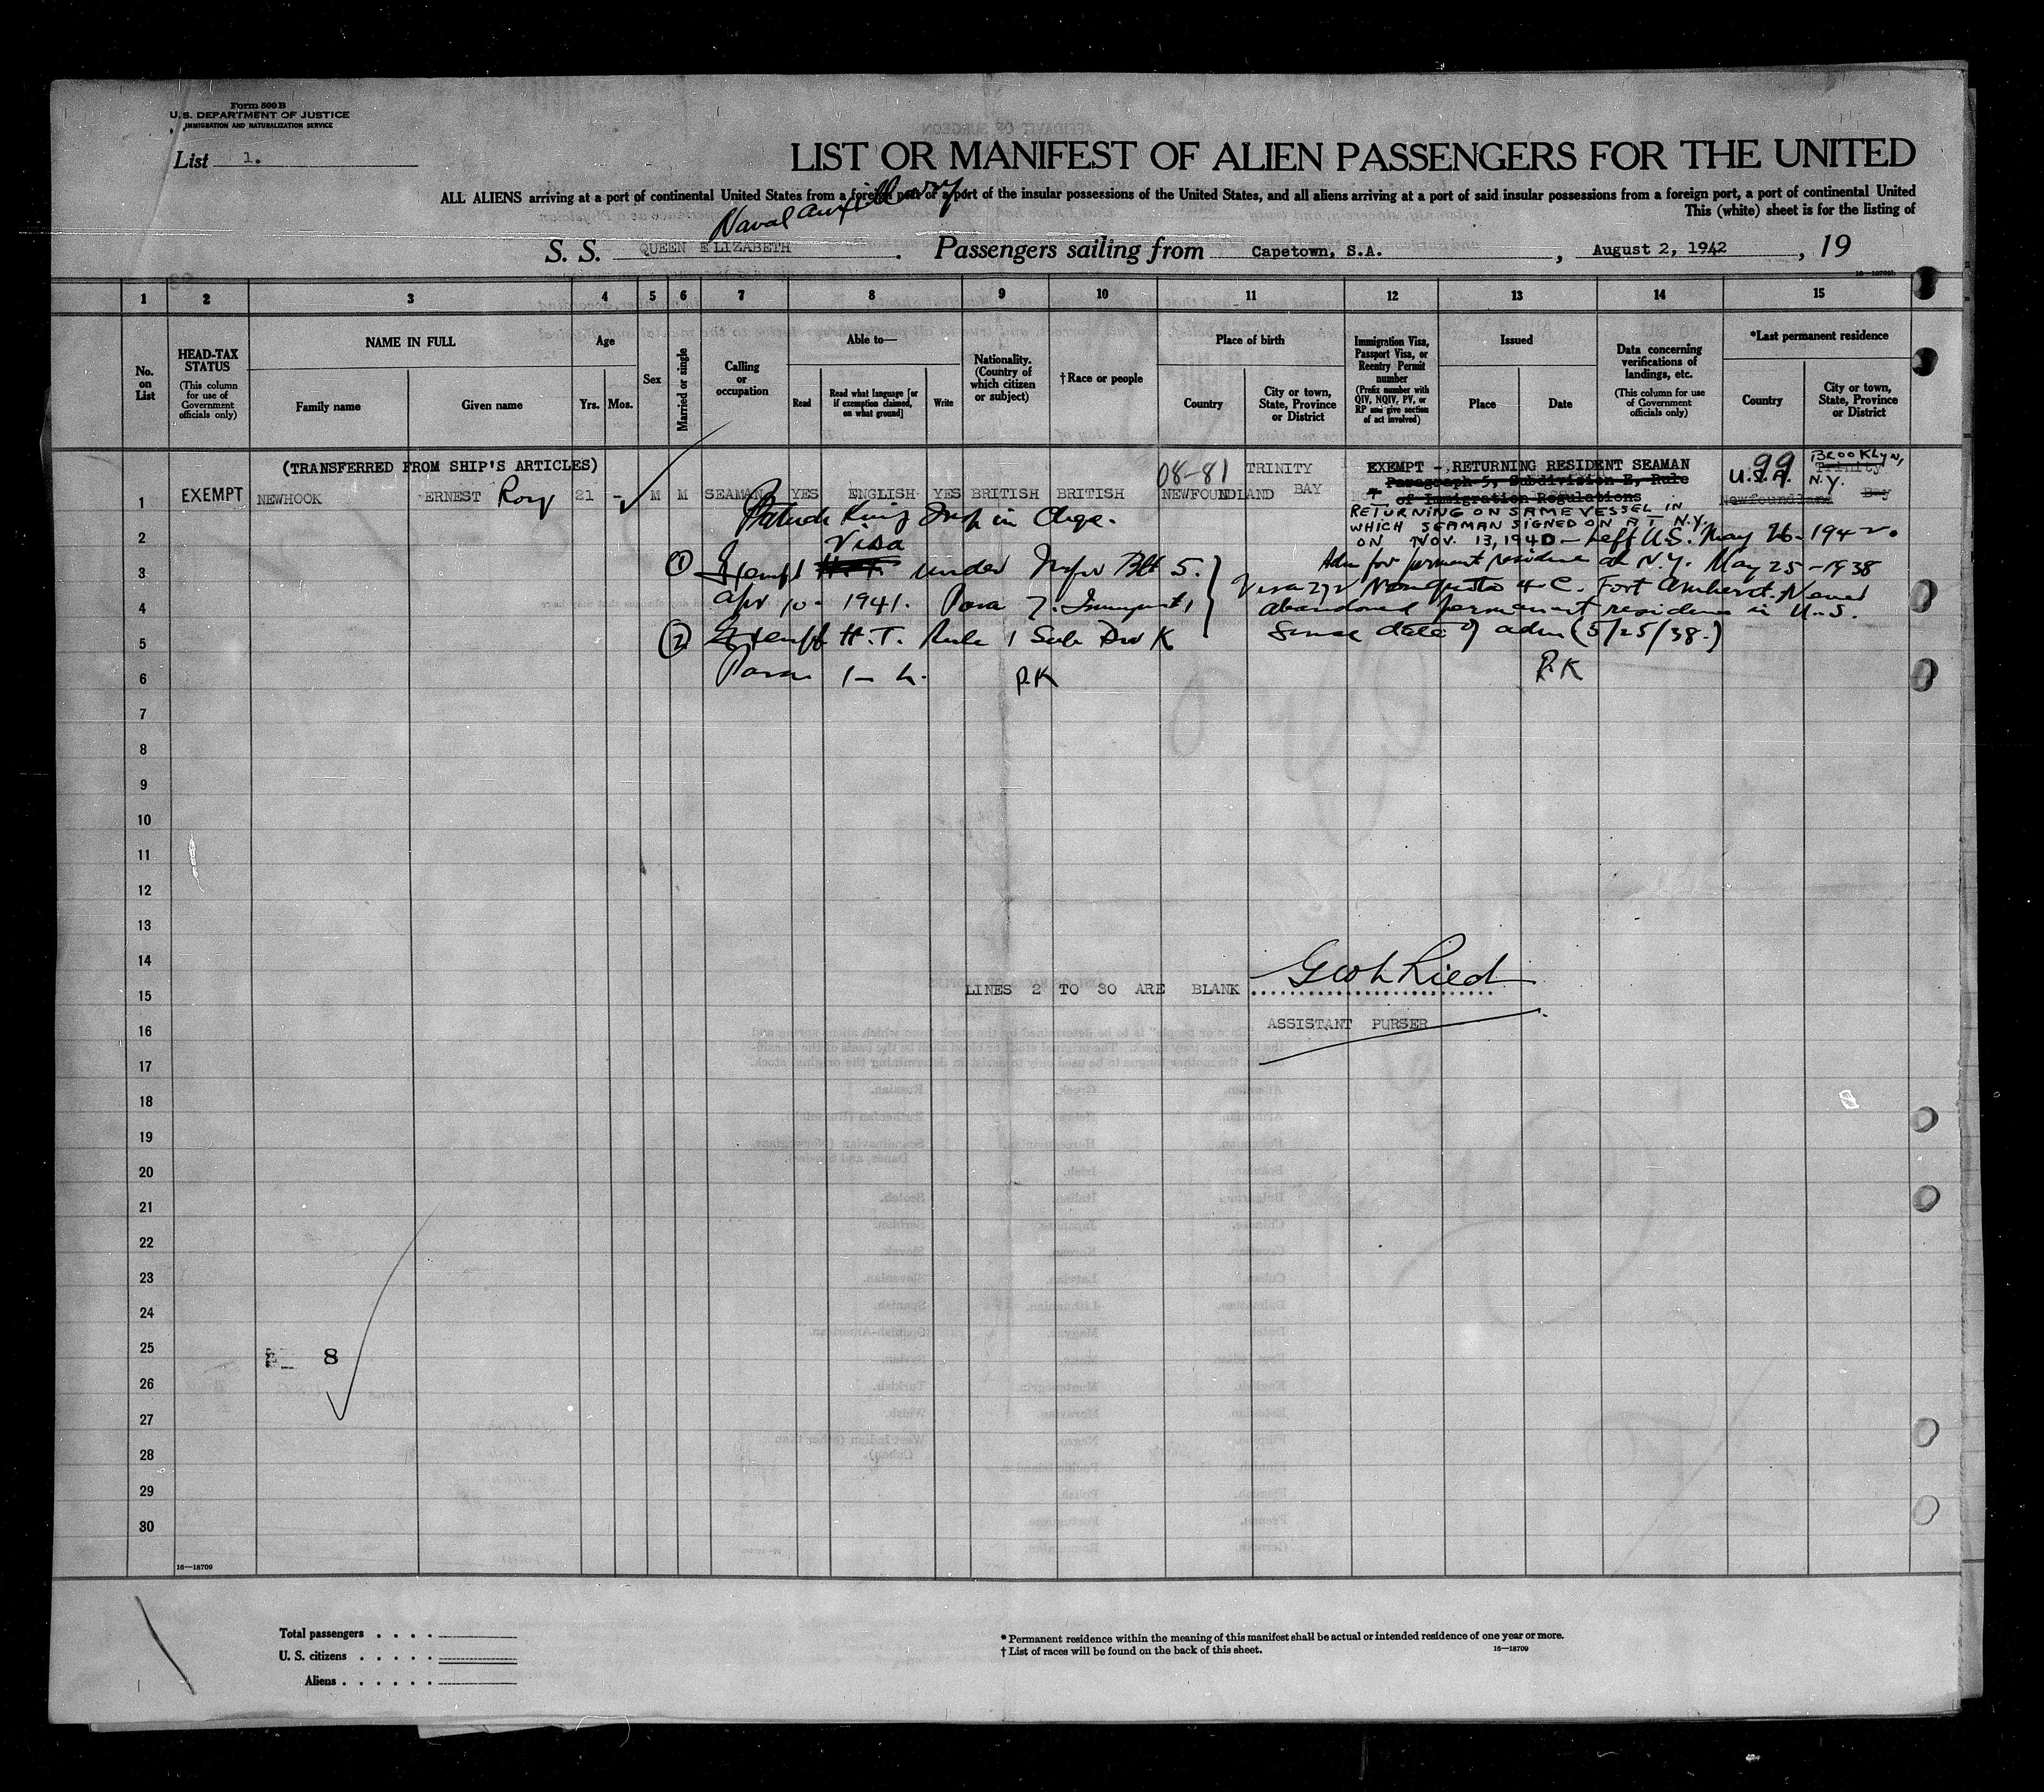 Form 500 B
U. S. DEPARTMENT OF JUSTICE
IMMIGRATION AND NATURALIZATION SERVICE
List 1.
LIST OR MANIFEST OF ALIEN PASSENGERS FOR THE UNITED
ALL ALIENS arriving at a port of continental United States from a foreign port or a port of the insular possessions of the United States, and all aliens arriving at a port of said insular possessions from a foreign port, a port of continental United
This (white) sheet is for the listing of
Naval auxiliary
S. S. QUEEN ELIZABETH . Passengers sailing from Capetown, S.A. , August 2, 1942 , 19
16—18709b
1 2 3 4 5 6 7 8 9 10 11 12 13 14 15
No. on List
HEAD-TAX STATUS
(This column for use of Government officials only)
NAME IN FULL
Family name
Given name
Age
Yrs. Mos.
Sex
Married or single
Calling or occupation
Able to—
Read
Read what language [or if exemption claimed, on what ground]
Write
Nationality. (Country of which citizen or subject)
†Race or people
Place of birth
Country
City or town, State, Province or District
Immigration Visa, Passport Visa, or Reentry Permit number
(Prefix number with QIV, NQIV, PV, or RP and give section of act involved)
Issued
Place
Date
Data concerning verifications of landings, etc.
(This column for use of Government officials only)
*Last permanent residence
Country
City or town, State, Province or District
(TRANSFERRED FROM SHIP'S ARTICLES) 08-81 TRINITY EXEMPT - RETURNING RESIDENT SEAMAN 99 BROOKLYN,
Paragraph 5, Subdivision E, Rule U.S.A. Trinity N.Y.
1 EXEMPT NEWHOOK ERNEST Roy 21 - M M SEAMAN YES ENGLISH YES BRITISH BRITISH NEWFOUNDLAND BAY of Immigration Regulations Newfoundland Bay
RETURNING ON SAME VESSEL IN
Patrick King Insp in Chge. WHICH SEAMAN SIGNED ON AT N.Y.
2 ON NOV. 13, 1940 - Left U.S. May 26-1942.
Visa
3 ① Exempt H.T. under Blt 5. Adm for permanent residence at N.Y. May 25-1938
4 Apr 10- 1941. Para 7. Visa Nonquota 4-C. Fort Amherst. Never
abandoned permanent residence in U.S.
5 ② Exempt H.T. Rule 1 Sub Div K since date of adm (5/25/38.)
6 Para 1- h. P.K P.K
7
8
9
10
11
12
13
14
15 LINES 2 TO 30 ARE BLANK
16 ASSISTANT PURSER
17
18
19
20
21
22
23
24
25 8
26
27
28
29
30
16—18709
Total passengers . . . .
U. S. citizens . . . . .
Aliens . . . . . .
* Permanent residence within the meaning of this manifest shall be actual or intended residence of one year or more.
† List of races will be found on the back of this sheet. 16—18709